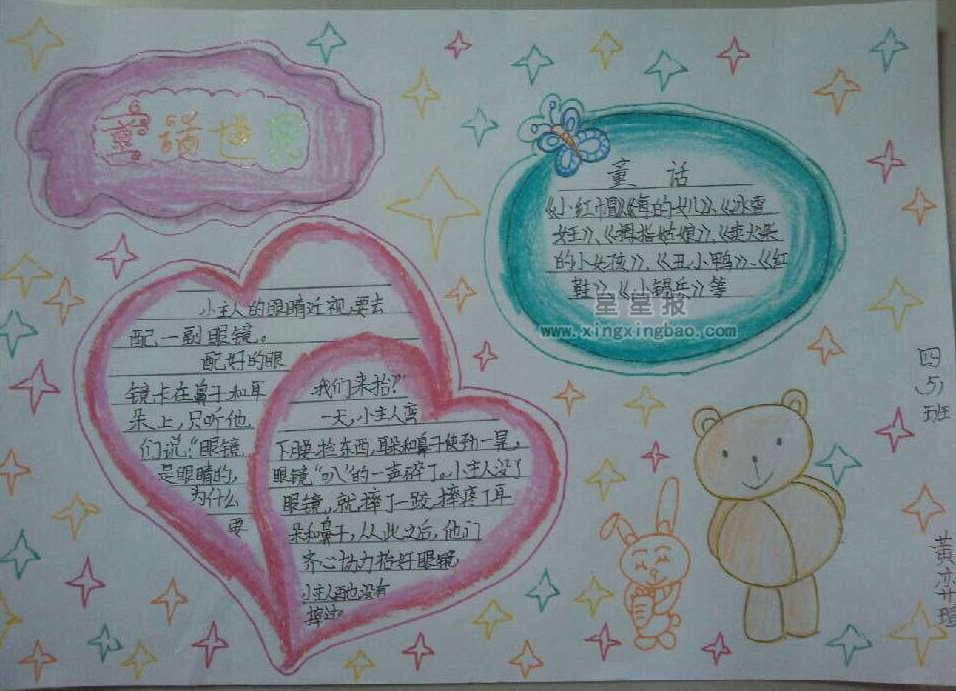 童话世界
小主人的眼睛近视,要去
配一副眼镜。
配好的眼
镜卡在鼻子和耳
朵上,只听他
们说:“眼镜
是眼睛的,
为什么
要
我们来抬?”
一天,小主人弯
下腰捡东西,耳朵和鼻子使劲一晃,
眼镜“叭”的一声碎了。小主人没了
眼镜,就摔了一跤,摔疼了耳
朵和鼻子,从此之后,他们
齐心协力抬好眼镜,
小主人再也没有
摔过。
童话
《小红帽》《海的女儿》、《冰雪
女王》、《拇指姑娘》、《卖火柴
的小女孩》、《丑小鸭》、《红
鞋》、《小锡兵》等
星星报
www.xingxingbao.com
四(5)班
黄弈